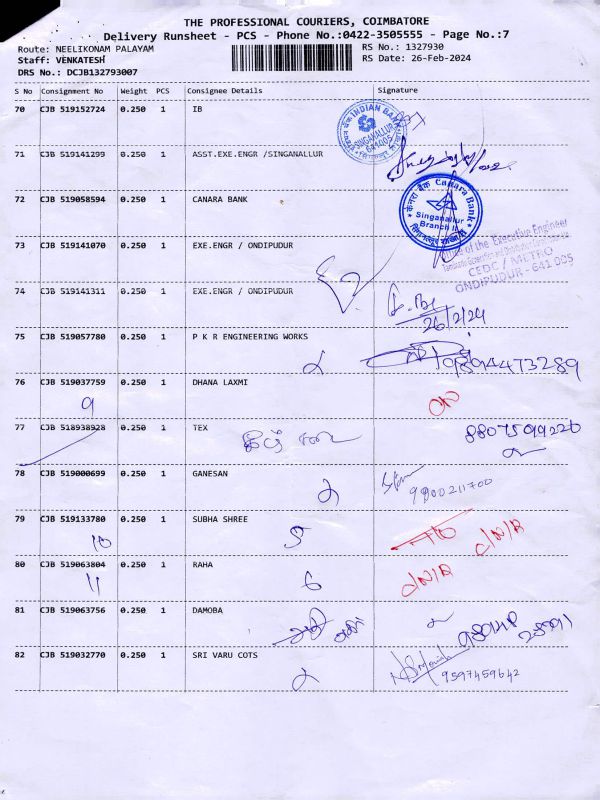 THE PROFESSIONAL COURIERS, COIMBATORE
Delivery Runsheet - PCS - Phone No.:0422-3505555 - Page No.:7
Route: NEELIKONAM PALAYAM RS No.: 1327930
Staff: VENKATESH RS Date: 26-Feb-2024
DRS No.: DCJB132793007
S No Consignment No Weight PCS Consignee Details Signature
70 CJB 519152724 0.250 1 IB
INDIAN BANK SINGANALLUR 641005
71 CJB 519141299 0.250 1 ASST.EXE.ENGR /SINGANALLUR
72 CJB 519058594 0.250 1 CANARA BANK
केनरा बैंक Canara Bank
Singanallur
Branch II
73 CJB 519141070 0.250 1 EXE.ENGR / ONDIPUDUR
of the Executive Engineer
CEDC / METRO
ONDIPUDUR - 641 005
74 CJB 519141311 0.250 1 EXE.ENGR / ONDIPUDUR
26/2/24
75 CJB 519057780 0.250 1 P K R ENGINEERING WORKS
9894473289
76 CJB 519037759 0.250 1 DHANA LAXMI
9
77 CJB 518938928 0.250 1 TEX
8807599220
78 CJB 519000699 0.250 1 GANESAN
2
9900211700
79 CJB 519133780 0.250 1 SUBHA SHREE
10 5 D/N/R
80 CJB 519063804 0.250 1 RAHA
11 6 D/N/R
81 CJB 519063756 0.250 1 DAMOBA
82 CJB 519032770 0.250 1 SRI VARU COTS
2
9597459642